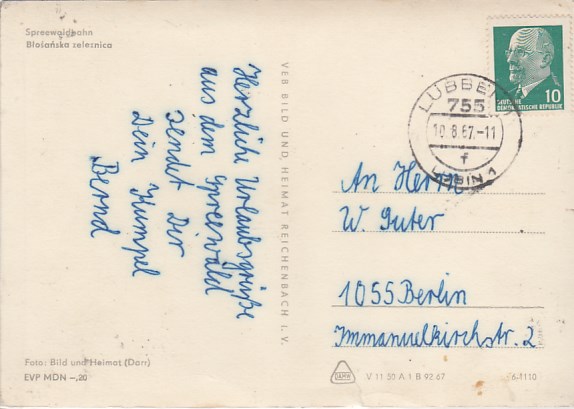 Spreewaldbahn
Błośańska zeleznica
Herzliche Urlaubsgrüße
aus dem Spreewald
sendet Dir
Dein Kumpel
Bernd
VEB BILD UND HEIMAT REICHENBACH I. V.
DEUTSCHE
DEMOKRATISCHE REPUBLIK
10
LÜBBEN
755
10.8.67.-11
f
An Herrn
W. Guter
1055 Berlin
Immanuelkirchstr. 2
Foto: Bild und Heimat (Darr)
EVP MDN –,20
V 11 50 A 1 B 92.67
6-1110